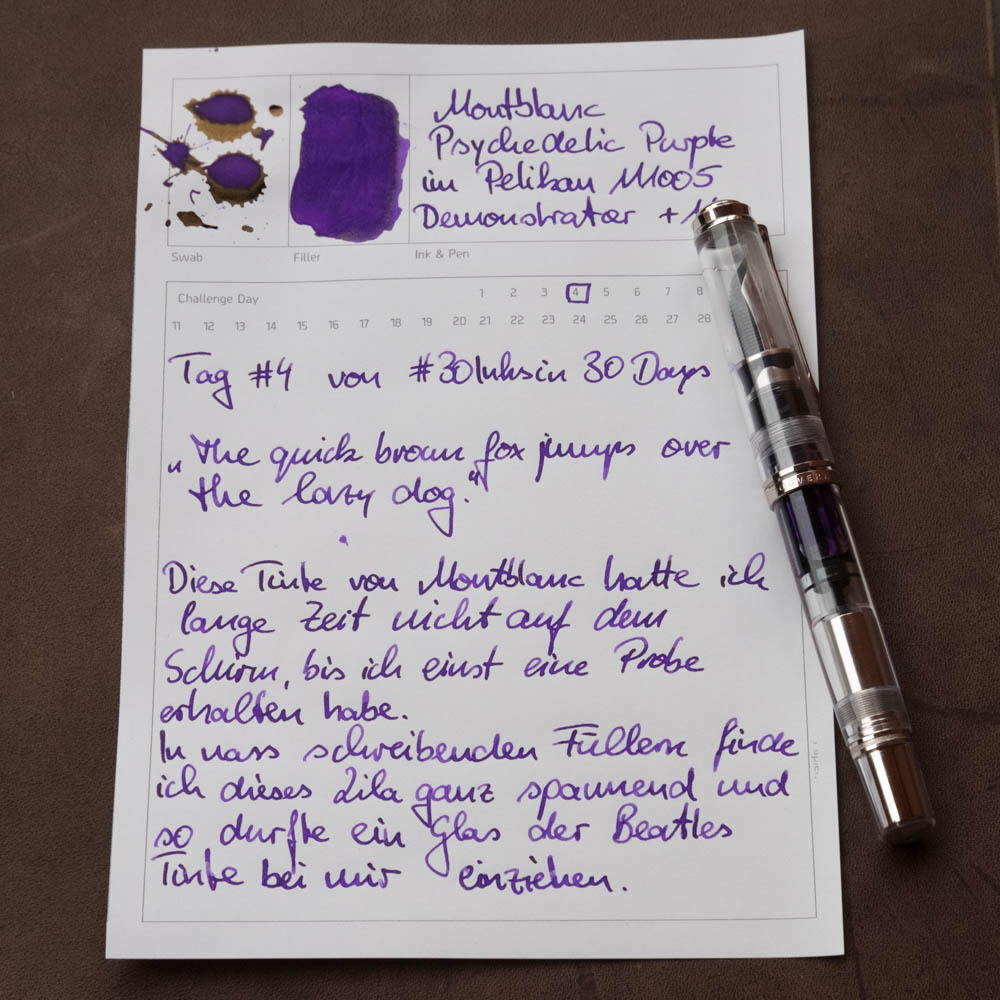 Montblanc
Psychedelic Purple
im Pelikan M1005
Demonstrator +
Swab
Filler
Ink & Pen
Challenge Day 1 2 3 4 5 6 7 8
11 12 13 14 15 16 17 18 19 20 21 22 23 24 25 26 27 28
Tag #4 von #30Inksin 30 Days
„the quick brown fox jumps over
the lazy dog.“
Diese Tinte von Montblanc hatte ich
lange Zeit nicht auf dem
Schirm, bis ich einst eine Probe
erhalten habe.
In nass schreibenden Füllern finde
ich dieses Lila ganz spannend und
so durfte ein Glas der Beatles
Tinte bei mir einziehen.